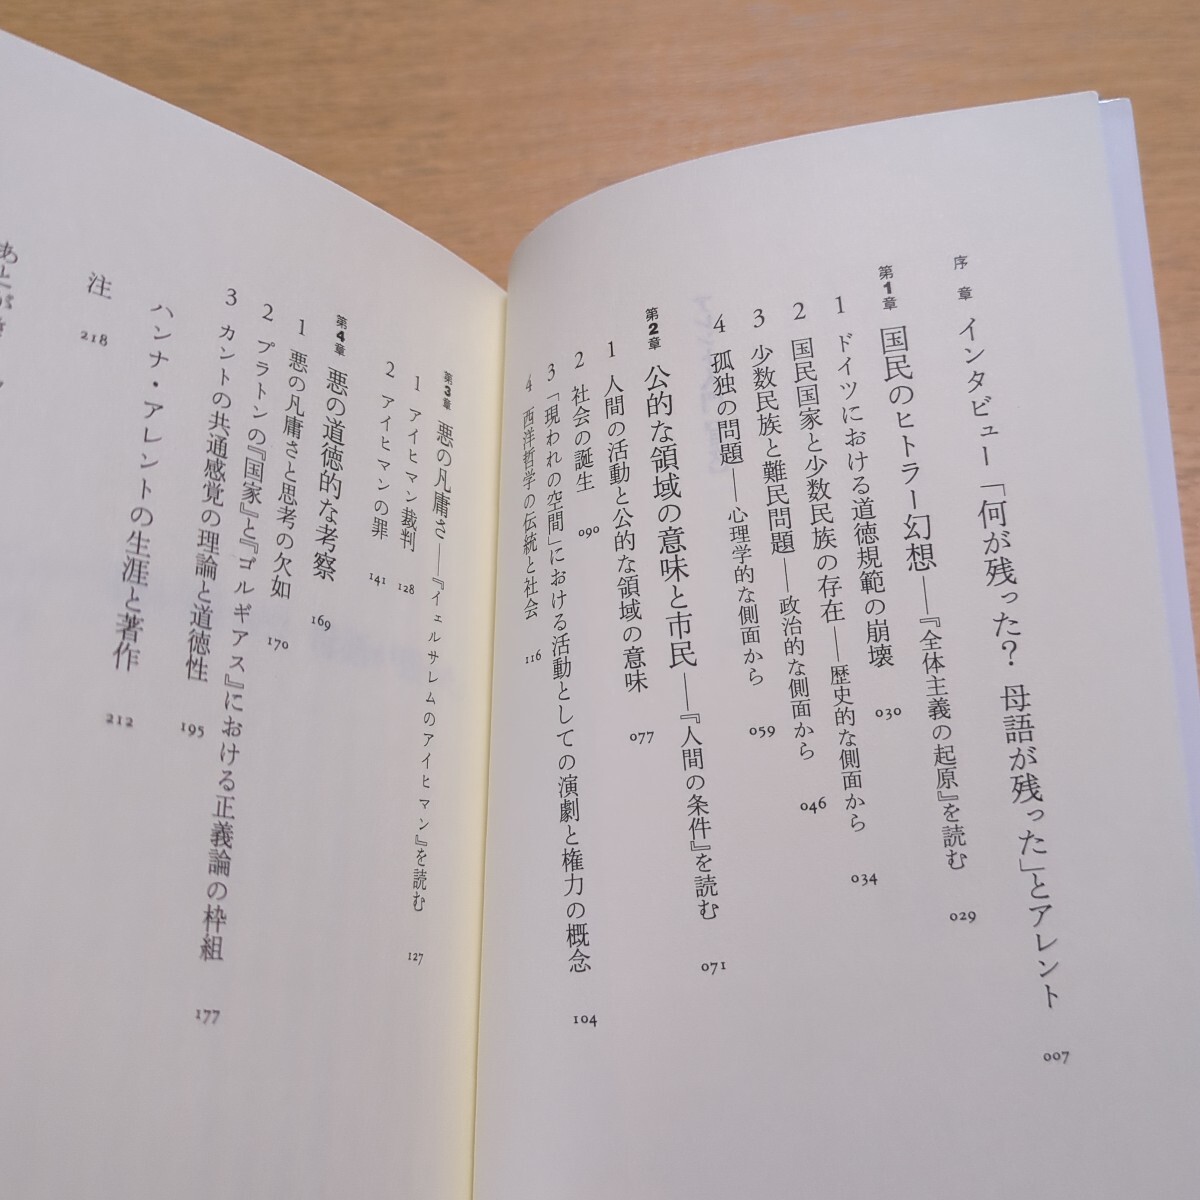 序章 インタビュー「何が残った？ 母語が残った」とアレント 007
第1章 国民のヒトラー幻想――『全体主義の起原』を読む 029
1 ドイツにおける道徳規範の崩壊 030
2 国民国家と少数民族の存在――歴史的な側面から 034
3 少数民族と難民問題――政治的な側面から 046
4 孤独の問題――心理学的な側面から 059
第2章 公的な領域の意味と市民――『人間の条件』を読む 071
1 人間の活動と公的な領域の意味 077
2 社会の誕生 090
3 「現われの空間」における活動としての演劇と権力の概念 104
4 西洋哲学の伝統と社会 116
第3章 悪の凡庸さ――『イェルサレムのアイヒマン』を読む 127
1 アイヒマン裁判 128
2 アイヒマンの罪 141
第4章 悪の道徳的な考察 169
1 悪の凡庸さと思考の欠如 170
2 プラトンの『国家』と『ゴルギアス』における正義論の枠組 177
3 カントの共通感覚の理論と道徳性 195
ハンナ・アレントの生涯と著作 212
注 218
あとがき